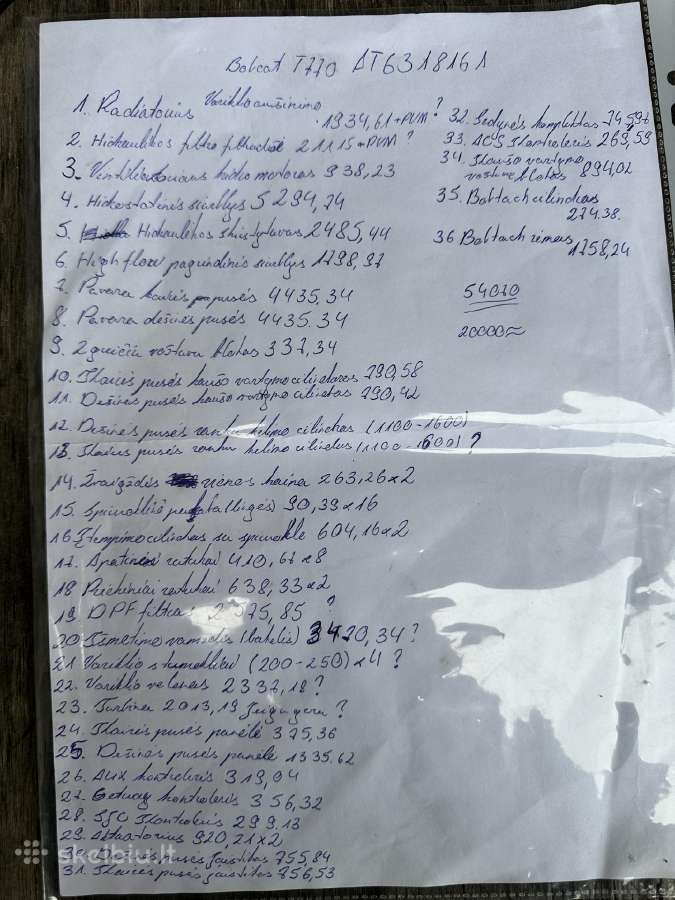 Bobcat T770 AT6318161
1. Radiatorius Variklio aušinimo 1934,61+PVM ?
2. Hidraulikos filtro 211,15+PVM ?
3. Ventiliatoriaus hidro motoras 938,23
4. Hidrostatinės siurblys 5294,74
5. Hidraulikos skirstytuvas 2485,44
6. High flow pagrindinis siurblys 1798,97
7. Pavara kairės pusės 4435,34
8. Pavara dešinės pusės 4435,34
9. 2 greičių vožtuvu blokas 337,34
10. Kairės pusės kaušo vartymo cilindras 790,58
11. Dešinės pusės kaušo vartymo cilindras 790,42
12. Dešinės pusės rankų kėlimo cilindras (1100-1600)
13. Kairės pusės rankų kėlimo cilindras (1100-1600) ?
14. Žvaigždės vienos kaina 263,26x2
15. Spindulė 90,39x16
16. Įtempimo cilindras su spiruokle 604,16x2
17. Apatiniai ratukai 410,67x8
18 Priekiniai ratukai 638,33x2
19. DPF filtras 2575,85 ?
20. Išmetimo vamzdis (bakelis) 3420,34 ?
21. Variklio stūmokliai (200-250)x4 ?
22. Variklio velenas 2337,18 ?
23. Turbina 2013,19 Jeigu gera ?
24. Kairės pusės panėlė 375,36
25. Dešinės pusės panėlė 1335.62
26. AUX kontroleris 319,94
27. Getway kontroleris 356,32
28. SJC Kontroleris 299.13
29. Aktuatorius 920,21x2
30. Dešinės pusės joistikas 755,84
31. Kairės pusės joistikas 856,53
32. Sėdynės komplektas 74,596
33. ACS Kontroleris 269,59
34. Kaušo vartymo
vožtuvų blokas 894,02
35. Bobtach cilindras
274.38.
36 Bobtach rėmas
1758,24
54070
20000≈
skelbiu.lt